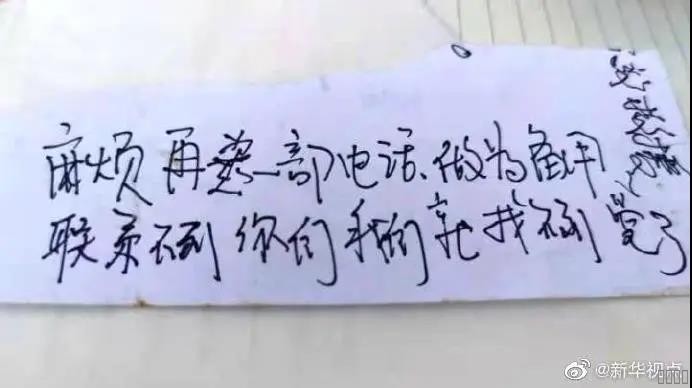 麻烦再一部电话、做为备用
联系不到你们我们就找不到了
@新华视点